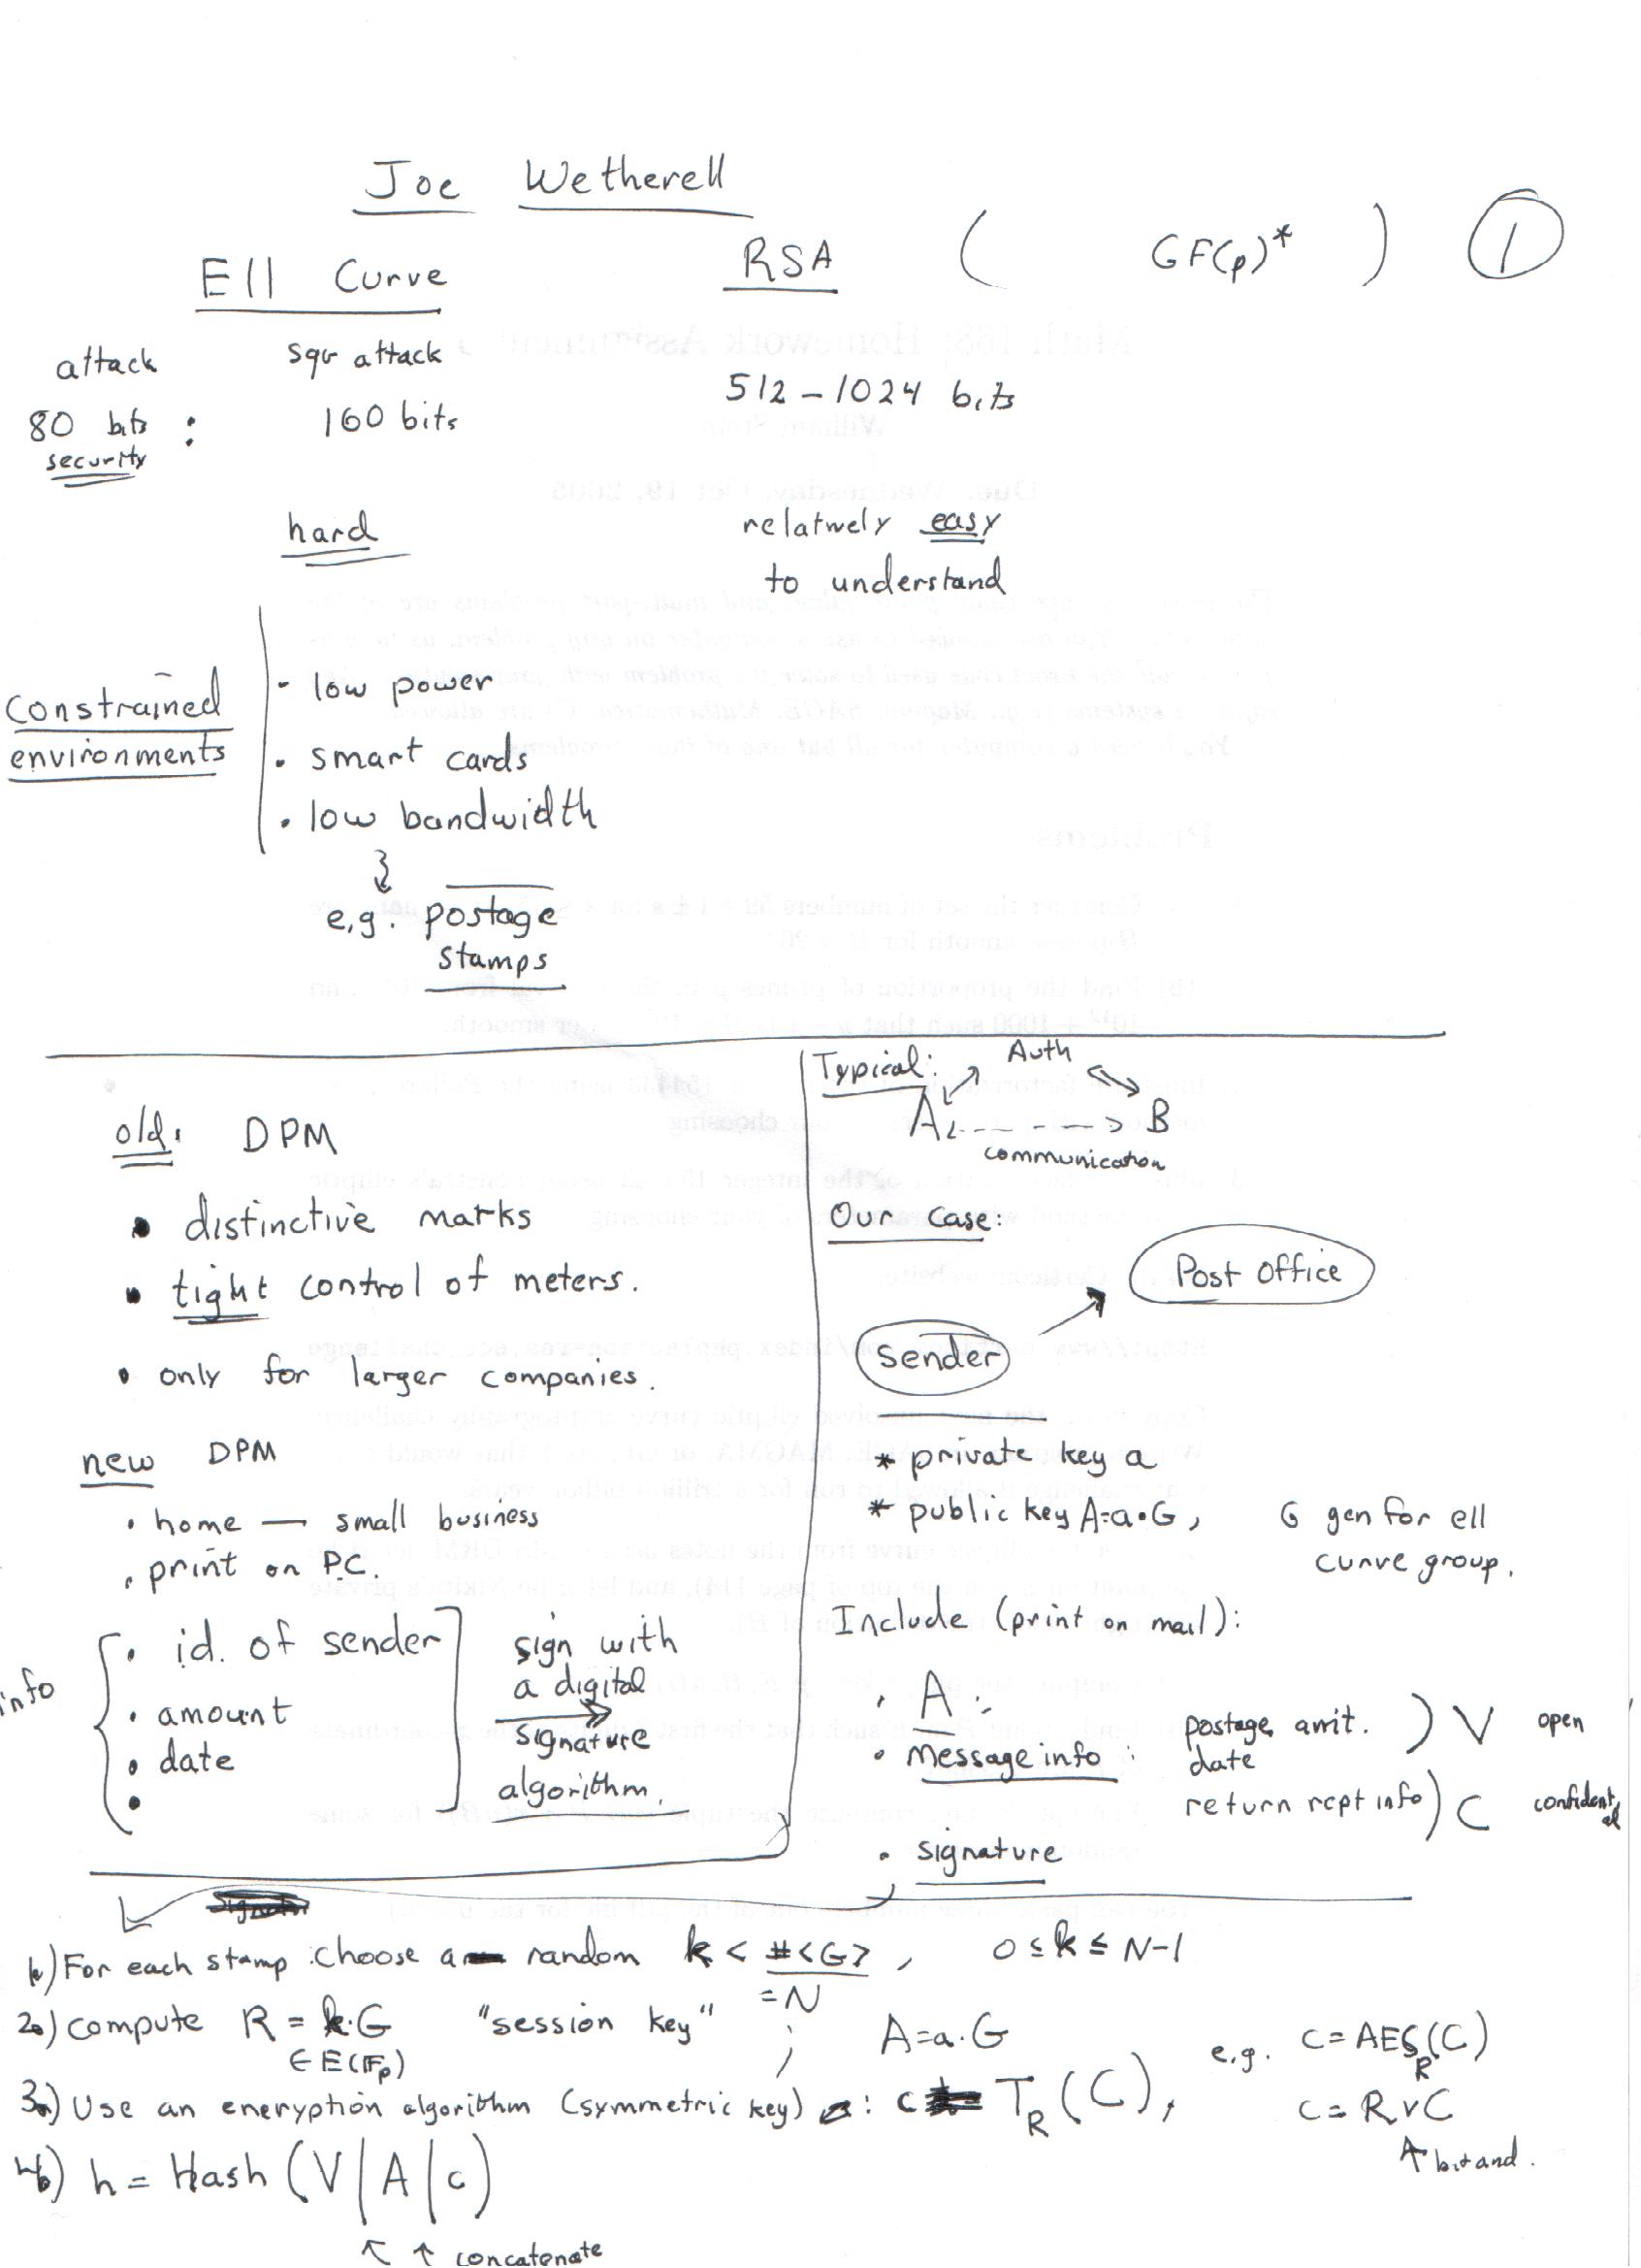 Joe Wetherell
Ell Curve RSA ( GF(p)* ) 1
attack sqr attack
80 bits : 160 bits 512 – 1024 bits
security
hard relatively easy
to understand
constrained
environments
- low power
• smart cards
• low bandwidth
e.g. postage
stamps
old: DPM
• distinctive marks
• tight control of meters.
• only for larger companies.
new DPM
• home — small business
• print on PC.
info
• id. of sender
• amount
• date
•
sign with
a digital
signature
algorithm.
Typical: Auth
A B
communication
Our case:
Post office
Sender
* private key a
* public key A=a•G, G gen for ell
curve group.
Include (print on mail):
• A.
• Message info : postage amt. ) V open
date
return rcpt info ) C confidential
• signature
1.) For each stamp choose a random k < #<G> , 0 ≤ k ≤ N-1
= N
2.) compute R = k•G "session key" ; A=a•G e.g. c = AES_R(C)
∈ E(F_p)
3.) Use an eneryption algorithm (symmetric key) : c = T_R(C), c = R v C
bit and.
4.) h = Hash (V|A|c)
concatenate